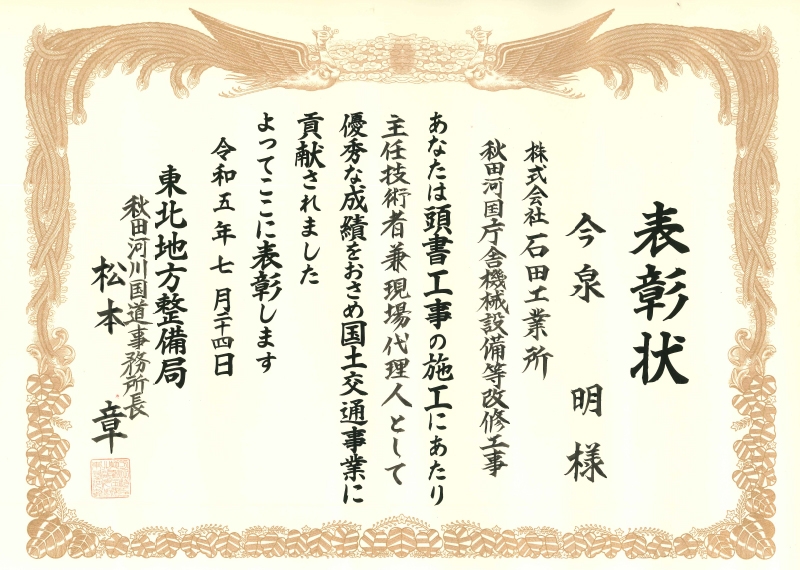 表彰状
今泉 明 様
株式会社 石田工業所
秋田河国庁舎機械設備等改修工事
あなたは頭書工事の施工にあたり
主任技術者兼現場代理人として
優秀な成績をおさめ国土交通事業に
貢献されました
よってここに表彰します
令和五年七月二十四日
東北地方整備局
秋田河川国道事務所長
松本 章